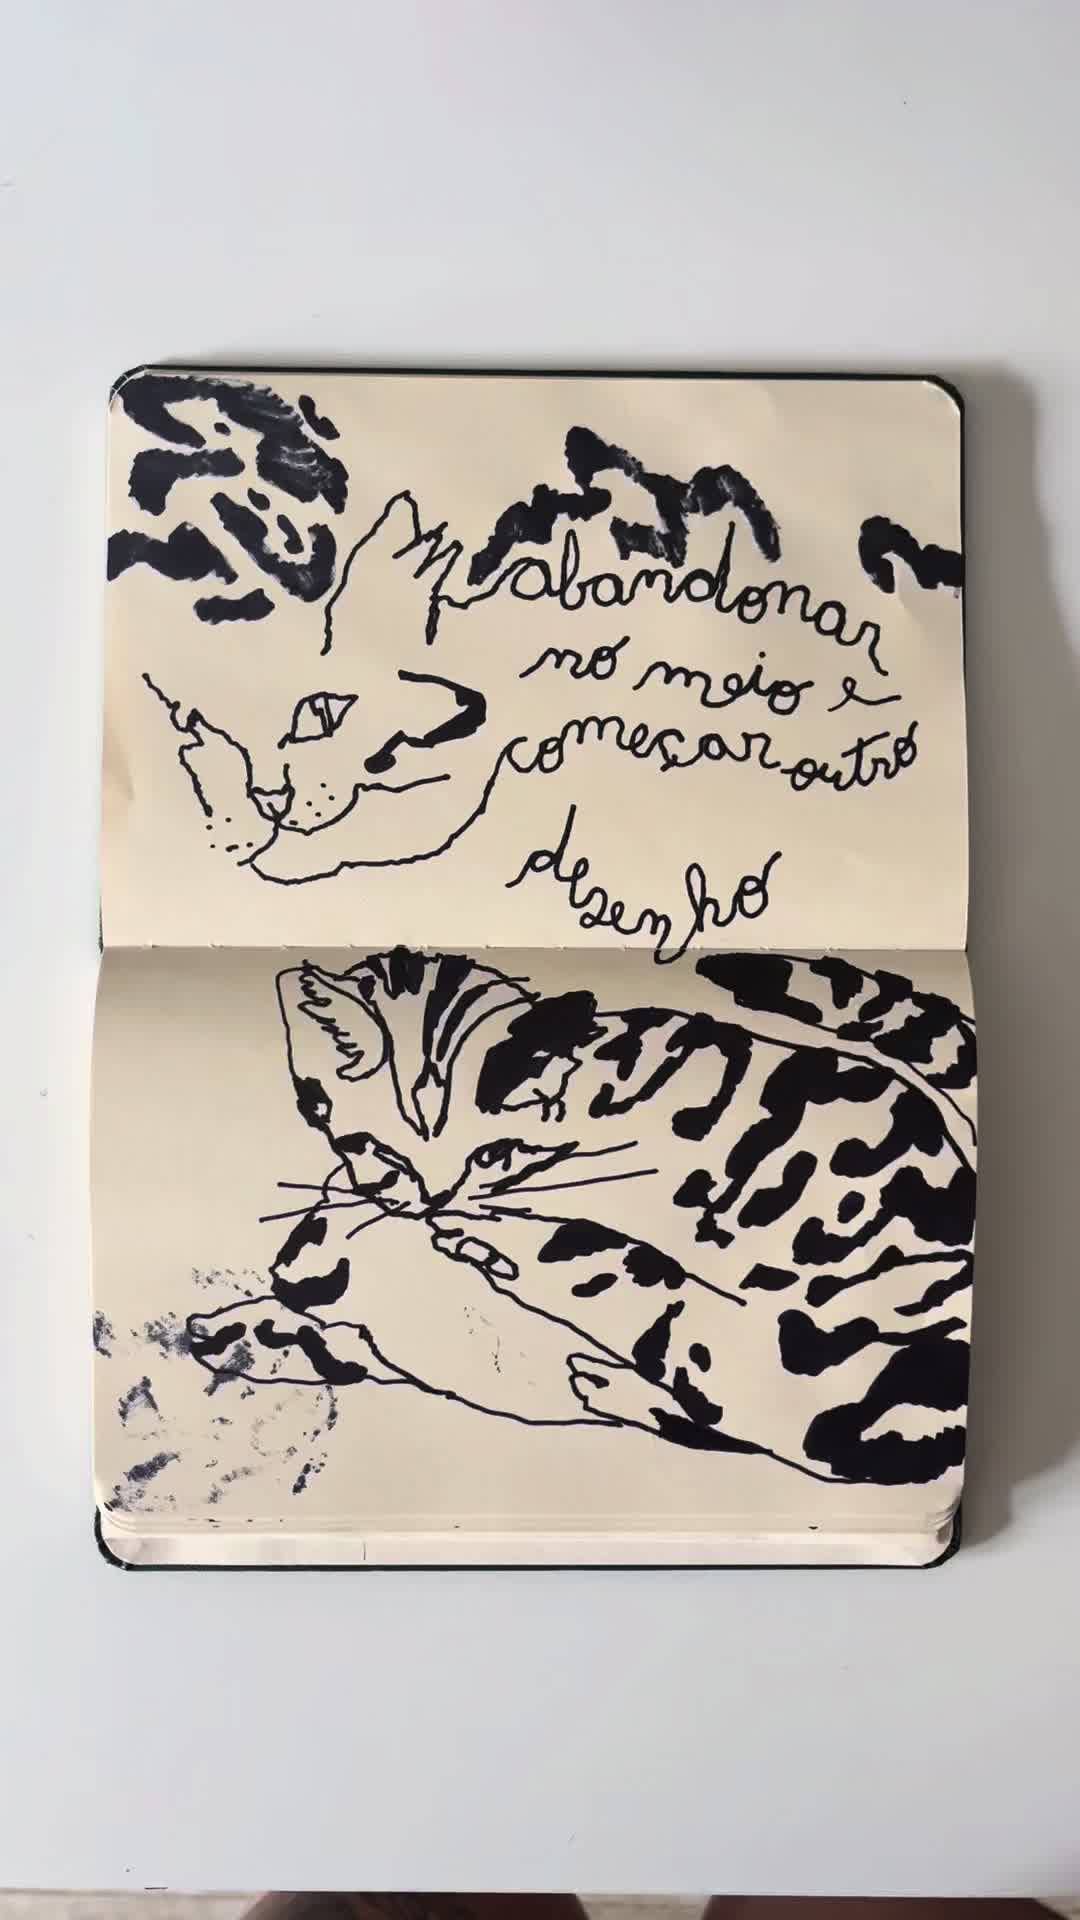 abandonar
no meio e
começar outro
desenho